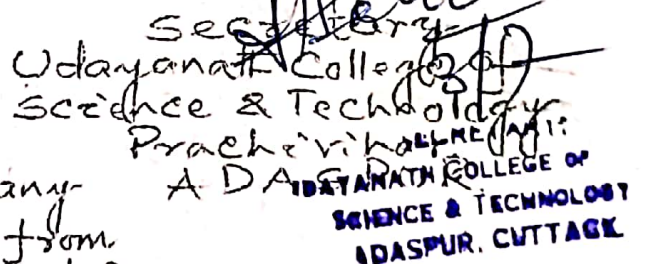 Secretary
Udayanath College of
Science & Technology
Prachivihar
ADASPUR
any-
from.
UDAYANATH COLLEGE OF
SCIENCE & TECHNOLOGY
ADASPUR, CUTTACK